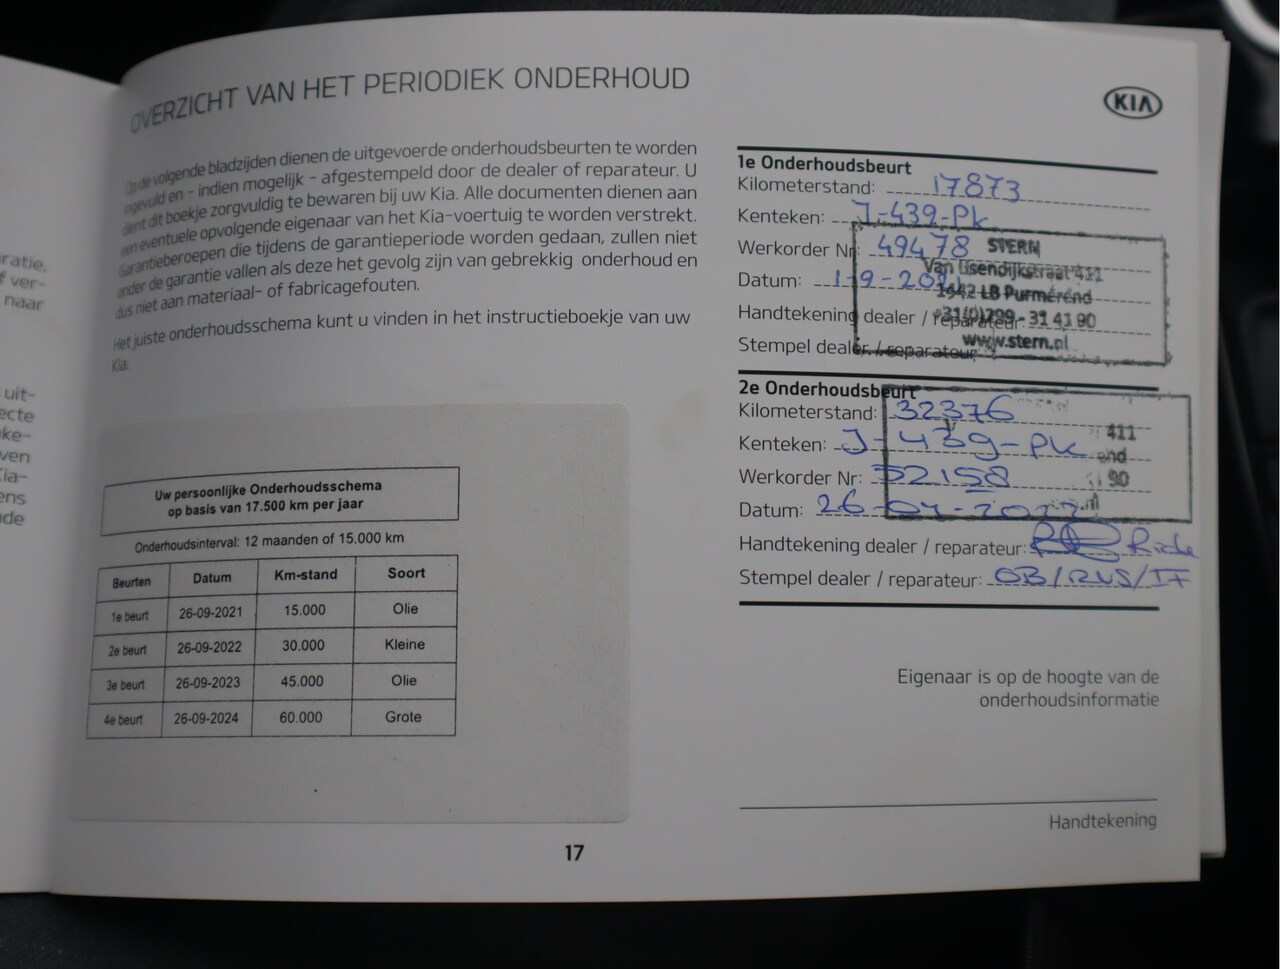 OVERZICHT VAN HET PERIODIEK ONDERHOUD
Op de volgende bladzijden dienen de uitgevoerde onderhoudsbeurten te worden
ingevuld en - indien mogelijk - afgestempeld door de dealer of reparateur. U
dient dit boekje zorgvuldig te bewaren bij uw Kia. Alle documenten dienen aan
een eventuele opvolgende eigenaar van het Kia-voertuig te worden verstrekt.
Garantieberoepen die tijdens de garantieperiode worden gedaan, zullen niet
onder de garantie vallen als deze het gevolg zijn van gebrekkig onderhoud en
dus niet aan materiaal- of fabricagefouten.
Het juiste onderhoudsschema kunt u vinden in het instructieboekje van uw
Kia.
Uw persoonlijke Onderhoudsschema
op basis van 17.500 km per jaar
Onderhoudsinterval: 12 maanden of 15.000 km
Beurten Datum Km-stand Soort
1e beurt 26-09-2021 15.000 Olie
2e beurt 26-09-2022 30.000 Kleine
3e beurt 26-09-2023 45.000 Olie
4e beurt 26-09-2024 60.000 Grote
17
KIA
1e Onderhoudsbeurt
Kilometerstand: 17873
Kenteken: J-439-PK
Werkorder Nr: 49478
Datum: 1-9-2021
Handtekening dealer / reparateur:
Stempel dealer / reparateur:
STERN
Van IJsendijkstraat 411
1442 LB Purmerend
+31(0)299 - 31 41 90
www.stern.nl
2e Onderhoudsbeurt
Kilometerstand: 32376
Kenteken: J-439-PK
Werkorder Nr: 52158
Datum: 26-04-2022
Handtekening dealer / reparateur:
Stempel dealer / reparateur:
411
end
90
.nl
Eigenaar is op de hoogte van de
onderhoudsinformatie
Handtekening
ratie.
f ver-
naar
uit-
ecte
ke-
ven
Kia-
ens